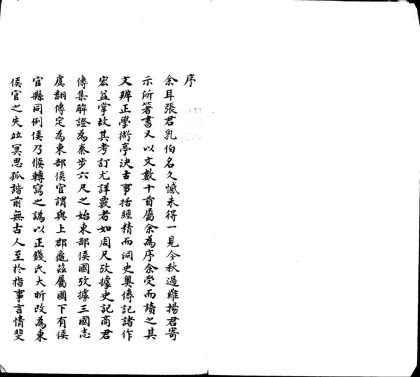 序
余耳張君乳伯名久憾未得一見今秋過雖揚君寄
示所箸書又以文數十首屬余為序余受而讀之其
文辨正學術亭決古事括經精而洞史奧傳記諸作
宏益掌故其考訂尤詳覈者如周尺攷據史記商君
傳集解證為秦步六尺之始東部侯國攷據三國志
虞翻傳定為東部侯官謂與上郡龜茲屬國下有侯
官縣同例侯乃候轉寫之譌以正錢氏大昕改為東
侯官之失竝冥思孤詣前無古人至於指事言情斐